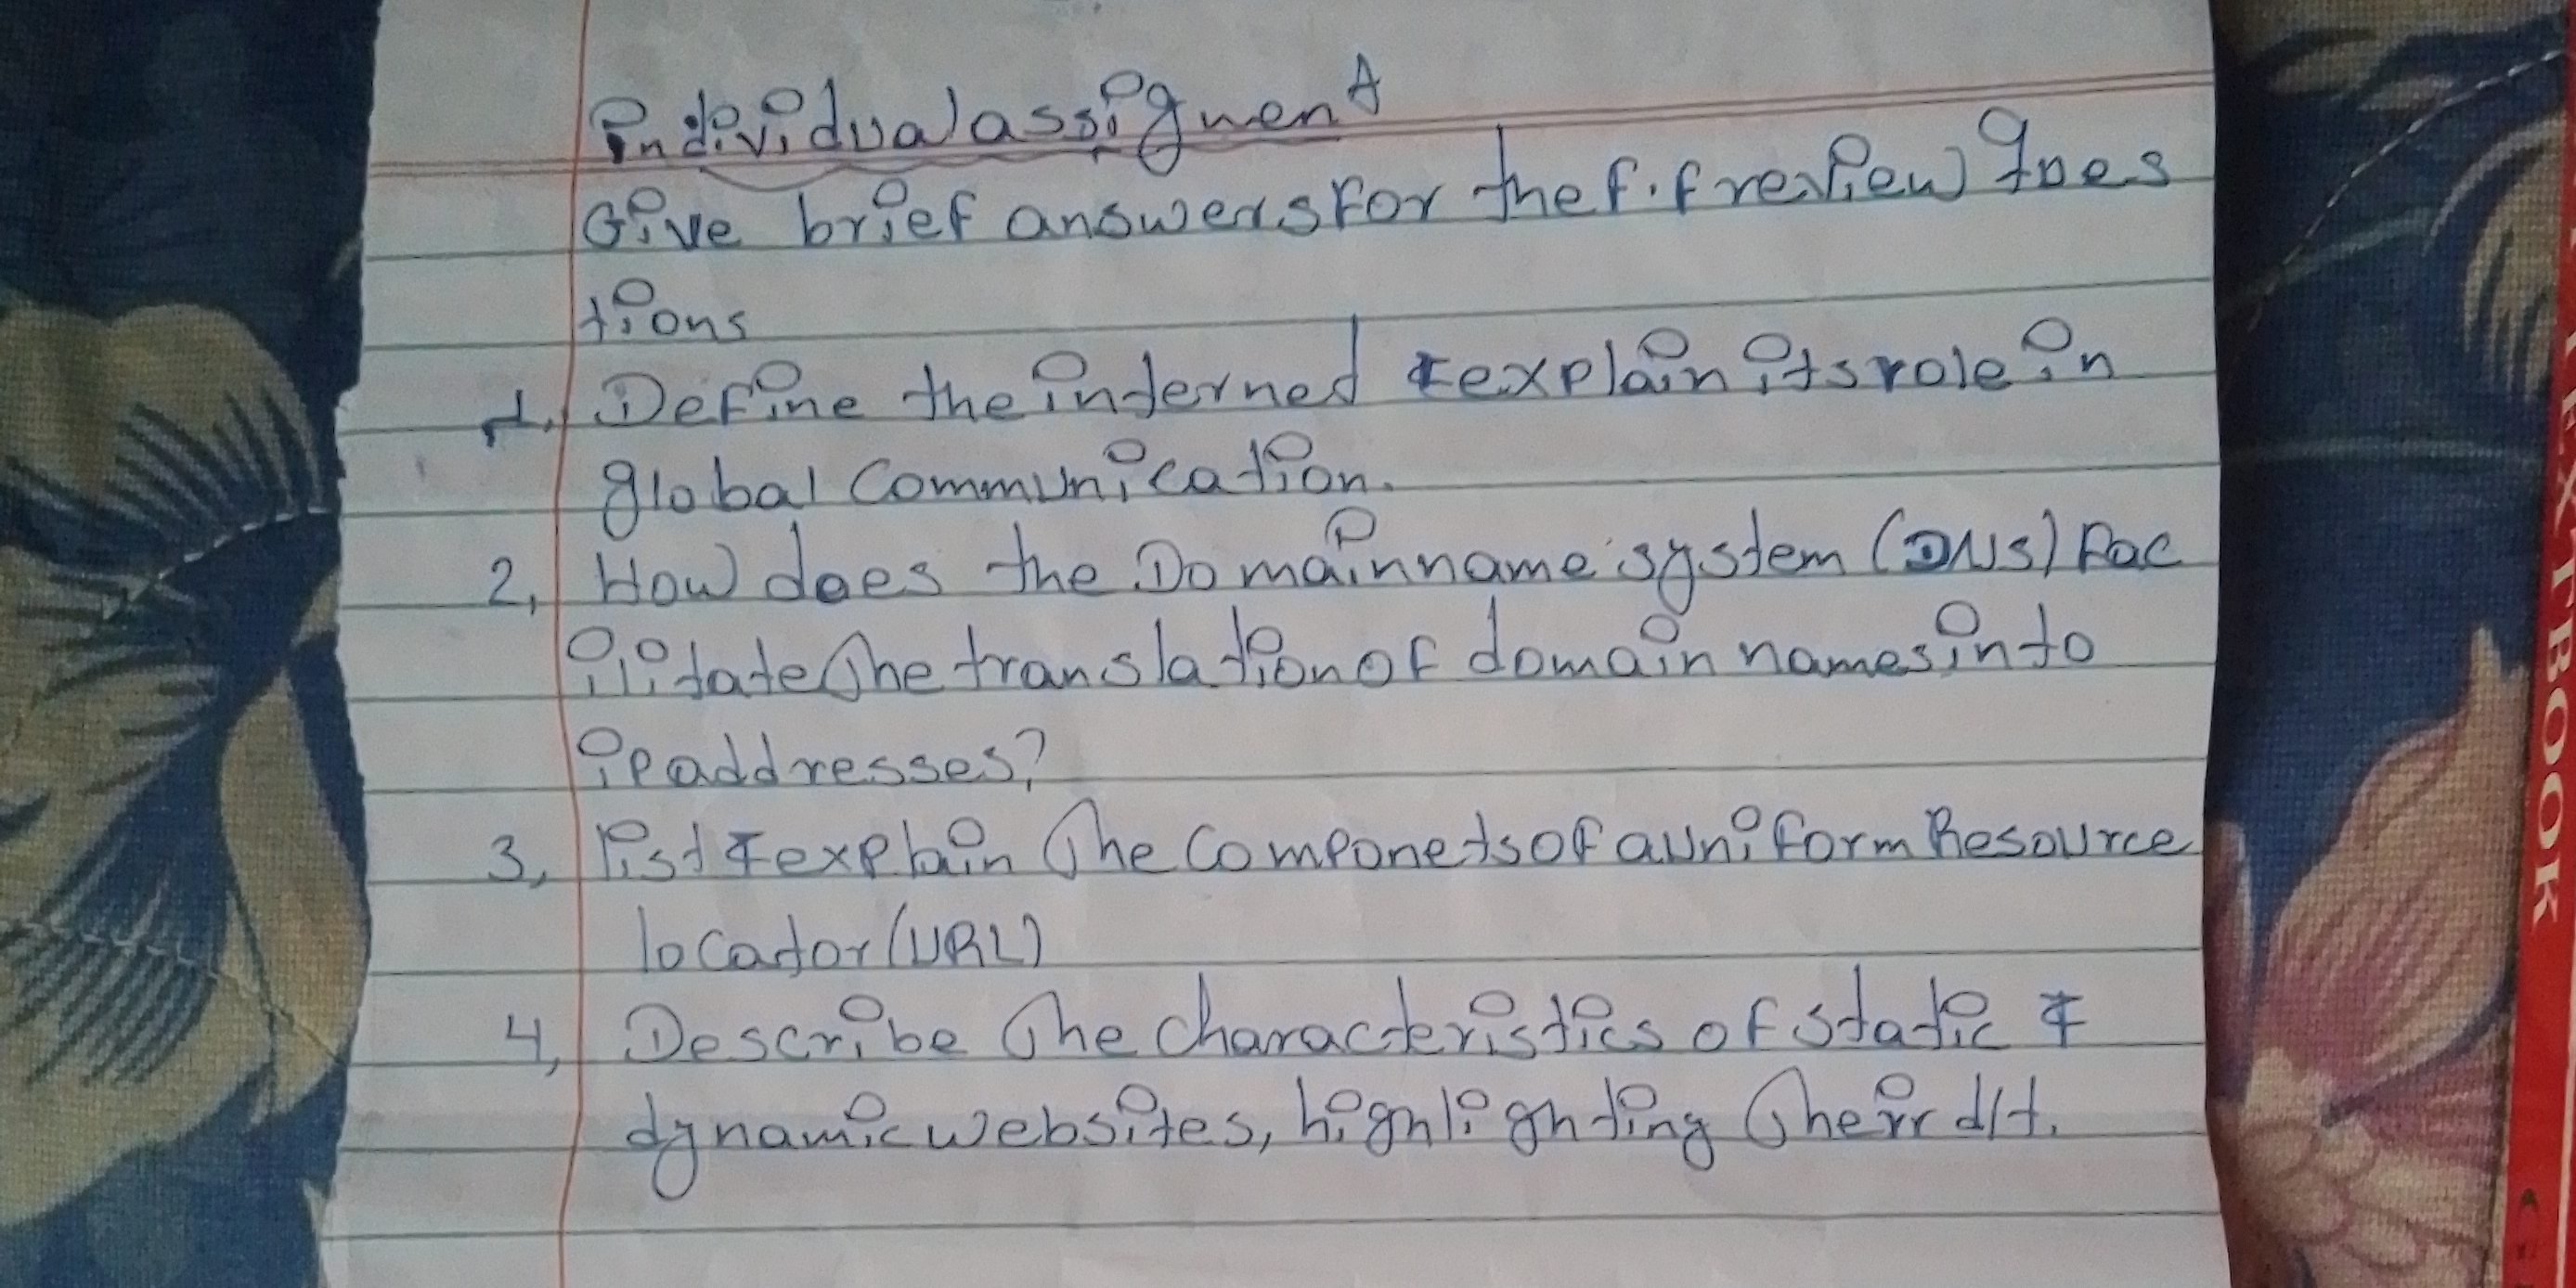 individual assignment
Give brief answers for the f.f review ques
tions
1. Define the interned & explain its role in
global Communication.
2, How does the Domain name system (DNS) Fac
ilitate The translation of domain names into
ip addresses?
3, list & explain The Componets of a uniform Resource
locator (URL)
4, Describe The characteristics of static &
dynamic websites, highlighting Their d/t.
TEXTBOOK